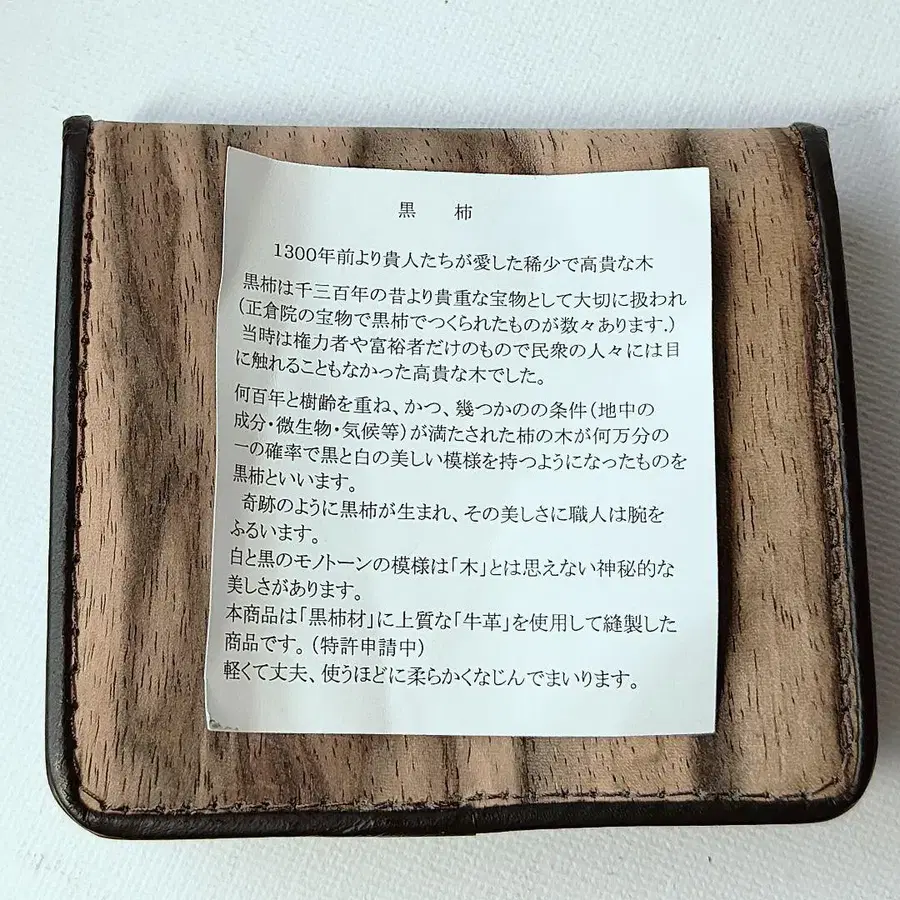 黒　柿
1300年前より貴人たちが愛した稀少で高貴な木
黒柿は千三百年の昔より貴重な宝物として大切に扱われ
(正倉院の宝物で黒柿でつくられたものが数々あります.)
当時は権力者や富裕者だけのもので民衆の人々には目
に触れることもなかった高貴な木でした。
何百年と樹齢を重ね、かつ、幾つかのの条件(地中の
成分・微生物・気候等)が満たされた柿の木が何万分の
一の確率で黒と白の美しい模様を持つようになったものを
黒柿といいます。
奇跡のように黒柿が生まれ、その美しさに職人は腕を
ふるいます。
白と黒のモノトーンの模様は「木」とは思えない神秘的な
美しさがあります。
本商品は「黒柿材」に上質な「牛革」を使用して縫製した
商品です。(特許申請中)
軽くて丈夫、使うほどに柔らかくなじんでまいります。